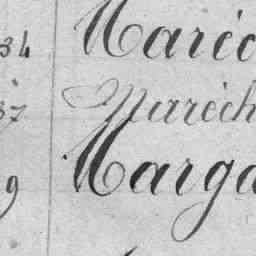 34 Maréc
37 Maréch
9 Marga